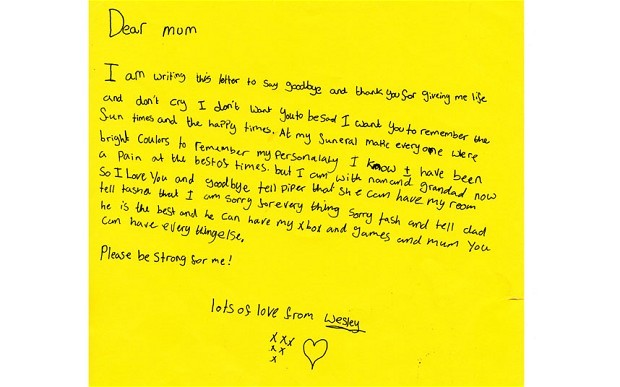 Dear mum
I am writing this letter to say goodbye and thank you for giveing me life
and don't cry I don't want you to be sad I want you to remember the
fun times and the happy times. At my funeral make every one were
bright coulors to remember my personalaty I know I have been
a pain at the best of times. but I am with nan and grandad now
So I Love You and goodbye tell Piper that She can have my room
tell tasha that I am sorry for every thing sorry tash and tell dad
he is the best and he can have my xbox and games and mum you
can have every thing else.
Please be Strong for me!
lots of love from Wesley
x xx
x x
x